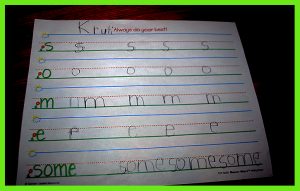 Always do your best!
s s s s s
o o o o o
m m m m m
e e e e e
some somesomesome